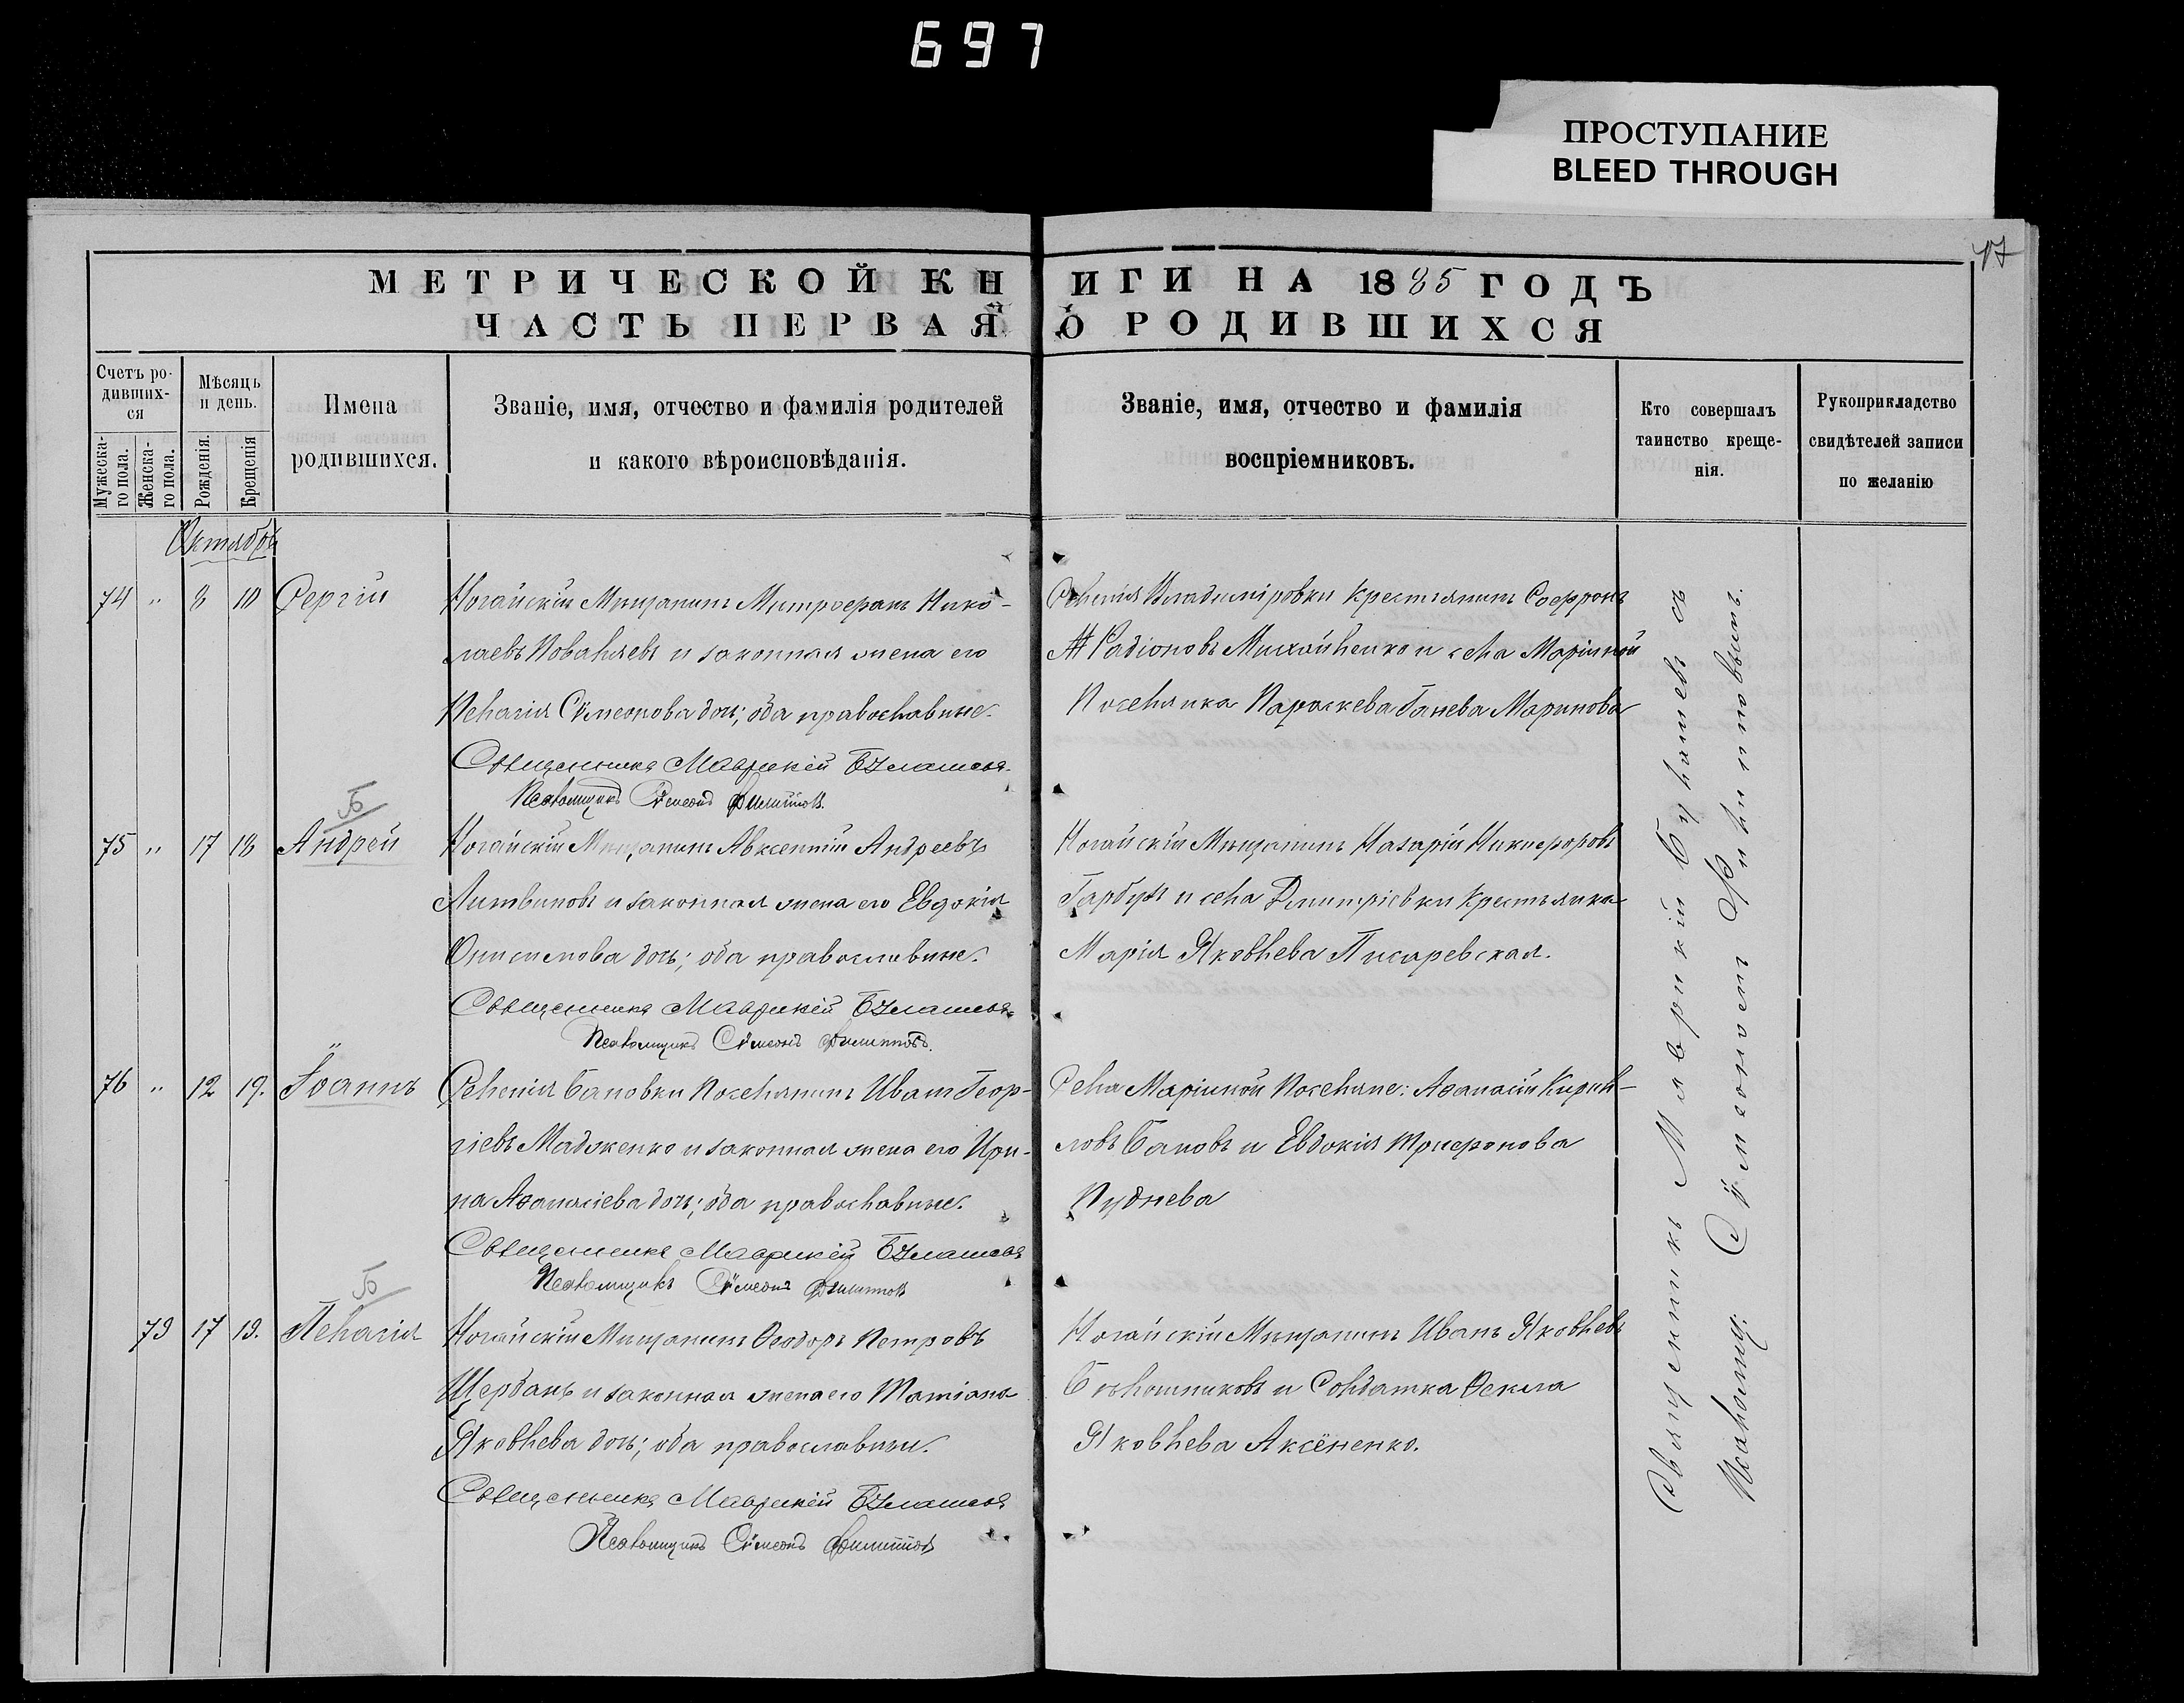 697
ПРОСТУПАНИЕ
BLEED THROUGH
17
МЕТРИЧЕСКОЙ КНИГИ НА 1885 ГОДЪ
ЧАСТЬ ПЕРВАЯ О РОДИВШИХСЯ
Счетъ ро-
дивших-
ся
Мужеска-
го пола.
Женска-
го пола.
Мѣсяцъ
и день.
Рожденія.
Крещенія
Имена
родившихся.
Званіе, имя, отчество и фамилія родителей
и какого вѣроисповѣданія.
Званіе, имя, отчество и фамилія
воспріемниковъ.
Кто совершалъ
таинство креще-
нія.
Рукоприкладство
свидѣтелей записи
по желанію
Октябрь
74 " 8 10 Сергій
Ногайскій Мѣщанинъ Митрофанъ Нико-
лаевъ Ковалевъ и законная жена его
Пелагія Сѵмеонова дочь; оба православные.
Священникъ Маврикій Булашевъ
Псаломщикъ Сѵмеонъ Филиповъ.
Селенія Владиміровки Крестьянинъ Софронъ
Радіоновъ Михайленко и села Маріиной
Поселянка Параскева Ганева Маринова
Б
75 " 17 18 Андрей
Ногайскій Мѣщанинъ Авксентій Андреевъ
Литвиновъ и законная жена его Евдокія
Онисимова дочь; оба православные.
Священникъ Маврикій Булашевъ
Псаломщикъ Сѵмеонъ Филиповъ.
Ногайскій Мѣщанинъ Назарій Никифоровъ
Гарбузъ и села Дмитріевки Крестьянка
Марія Яковлева Писаревская.
76 " 12 19. Іоаннъ
Селенія Бановки Поселянинъ Иванъ Геор-
гіевъ Мадженко и законная жена его Ири-
на Аѳанасіева дочь; оба православные.
Священникъ Маврикій Булашевъ
Псаломщикъ Сѵмеонъ Филиповъ
Села Маріиной Поселяне: Аѳанасій Кирил-
ловъ Бановъ и Евдокія Трифонова
Куднева
Б
79 17 19. Пелагія
Ногайскій Мѣщанинъ Ѳеодоръ Петровъ
Щербань и законная жена его Татіана
Яковлева дочь; оба православные.
Священникъ Маврикій Булашевъ
Псаломщикъ Сѵмеонъ Филиповъ
Ногайскій Мѣщанинъ Иванъ Яковлевъ
и Солдатка Ѳекла
Яковлева Аксёненко.
Священникъ Маврикій Булашевъ съ
Псаломщ. Сѵмеономъ Филиповымъ.